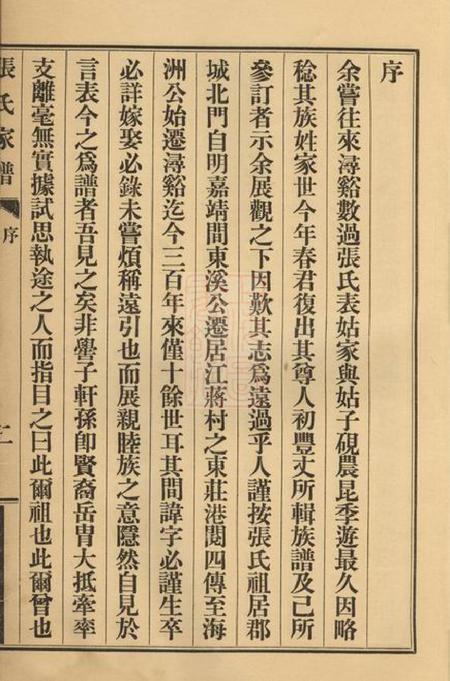 序
余嘗往來潯谿數過張氏表姑家與姑子硯農昆季遊最久因略
稔其族姓家世今年春君復出其尊人初豐丈所輯族譜及己所
參訂者示余展觀之下因歎其志爲遠過乎人謹按張氏祖居郡
城北門自明嘉靖間東溪公遷居江蔣村之東莊港閱四傳至海
洲公始遷潯谿迄今三百年來僅十餘世耳其間諱字必謹生卒
必詳嫁娶必錄未嘗煩稱遠引也而展親睦族之意隱然自見於
言表今之爲譜者吾見之矣非嚳子軒孫卽賢裔岳胄大抵牽率
支離毫無實據試思執途之人而指目之曰此爾祖也此爾曾也
張氏家譜
序